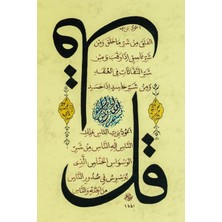 قل
أعوذ برب
الفلق من شر ما خلق ومن
شر غاسق إذا وقب ومن
شر النفاثات في العقد
ومن شر حاسد إذا حسد
أعوذ برب الناس ملك
الناس إله الناس من شر
الوسواس الخناس الذي
يوسوس في صدور الناس
من الجنة والناس